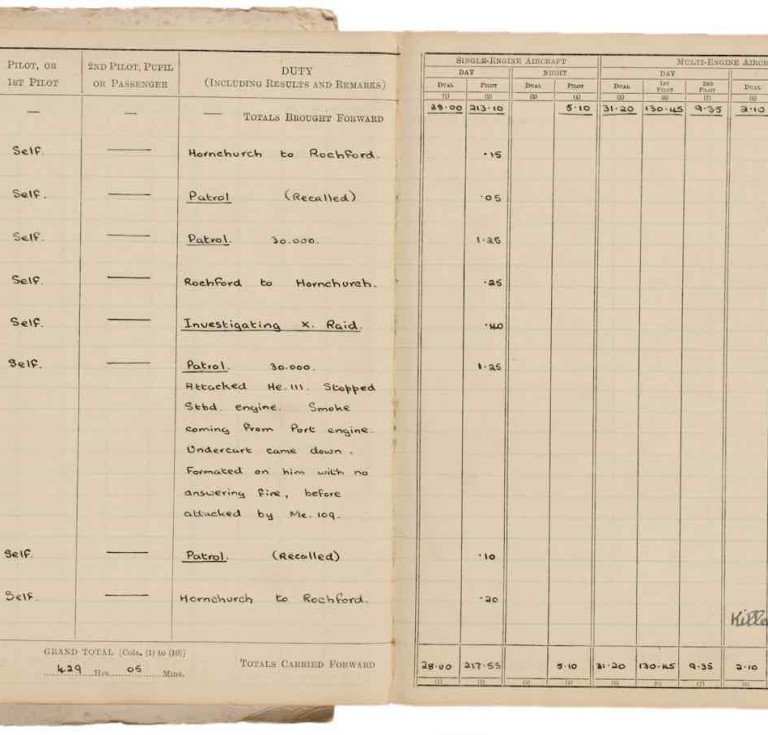 PILOT, OR
1ST PILOT
2ND PILOT, PUPIL
OR PASSENGER
DUTY
(INCLUDING RESULTS AND REMARKS)
SINGLE-ENGINE AIRCRAFT
MULTI-ENGINE AIRCR
DAY
NIGHT
DAY
DUAL
PILOT
DUAL
PILOT
DUAL
1ST PILOT
2ND PILOT
DUAL
(1) (2) (3) (4) (5) (6) (7) (8)
— — — TOTALS BROUGHT FORWARD 28·00 213·10 5·10 31·20 130·45 9·35 2·10
Self. — Hornchurch to Rochford. ·15
Self. — Patrol (Recalled) ·05
Self. — Patrol. 30.000. 1·25
Self. — Rochford to Hornchurch. ·25
Self. — Investigating x. Raid. ·40
Self. — Patrol. 30.000. 1·25
Attacked He.111. Stopped
Stbd. engine. Smoke
coming from Port engine.
Undercart came down.
Formated on him with no
answering fire, before
attacked by Me.109.
Self. — Patrol. (Recalled) ·10
Self. — Hornchurch to Rochford. ·20
GRAND TOTAL [Cols. (1) to (10)]
429 Hrs. 05 Mins.
TOTALS CARRIED FORWARD 28·00 217·55 5·10 31·20 130·45 9·35 2·10
(1) (2) (3) (4) (5) (6) (7) (8)